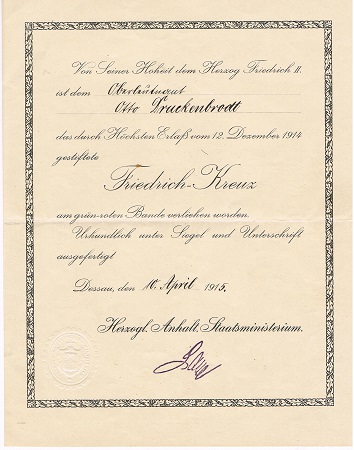 Von Seiner Hoheit dem Herzog Friedrich II.
ist dem Oberleutnant
Otto Druckenbrodt
das durch Höchsten Erlaß vom 12. Dezember 1914
gestiftete
Friedrich-Kreuz
am grün-roten Bande verliehen worden.
Urkundlich unter Siegel und Unterschrift
ausgefertigt
Dessau, den 10. April 1915.
Herzogl. Anhalt. Staatsministerium.